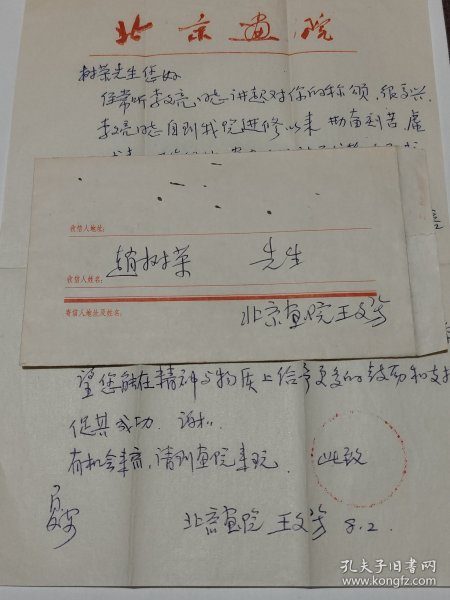 北京画院
树荣先生您好
经常听李文亮同志讲起对你的称颂,很高兴.
李文亮同志自到我院进修以来 勤奋刻苦 虚
收信人地址:
收信人姓名:
赵树荣 先生
寄信人地址及姓名:
北京画院王文芳
望您能在精神与物质上给予更多的鼓励和支持
促其成功. 谢谢.
有机会来京,请到画院来玩. 此致
夏安
北京画院 王文芳 8.2.
孔夫子旧书网
www.kongfz.com